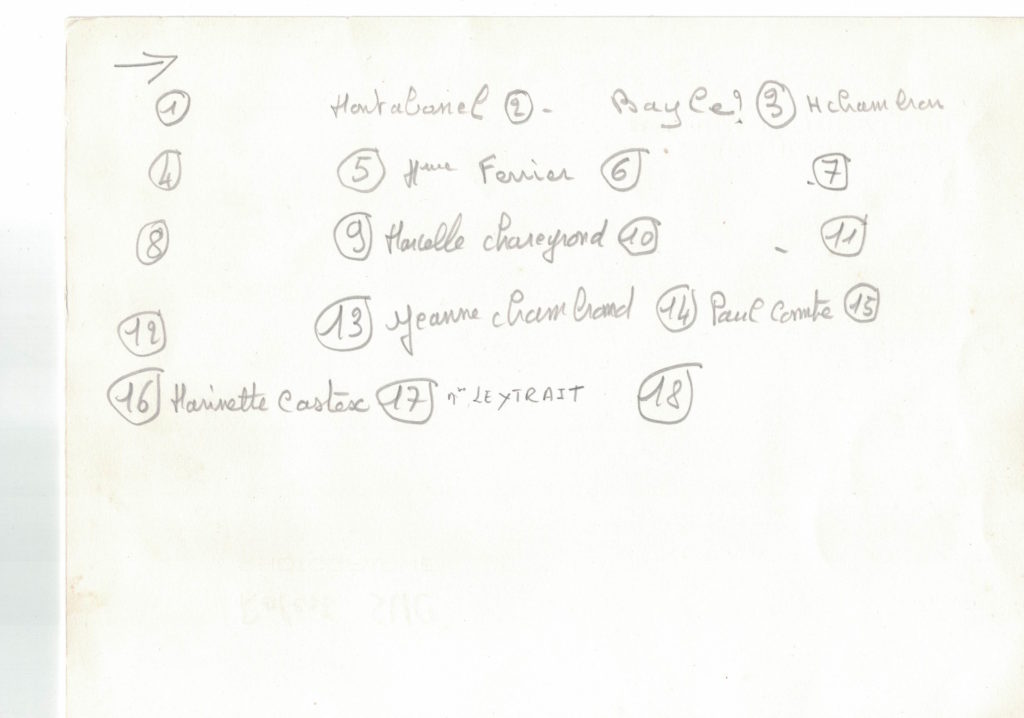 →
① Montabonel ② - Bayle? ③ M Chambron
④ ⑤ Mme Ferrier ⑥ ⑦
⑧ ⑨ Marcelle Chareyrond ⑩ - ⑪
⑫ ⑬ Jeanne Chambrond ⑭ Paul Combe ⑮
⑯ Marinette Castex ⑰ Mr LEYTRAIT ⑱